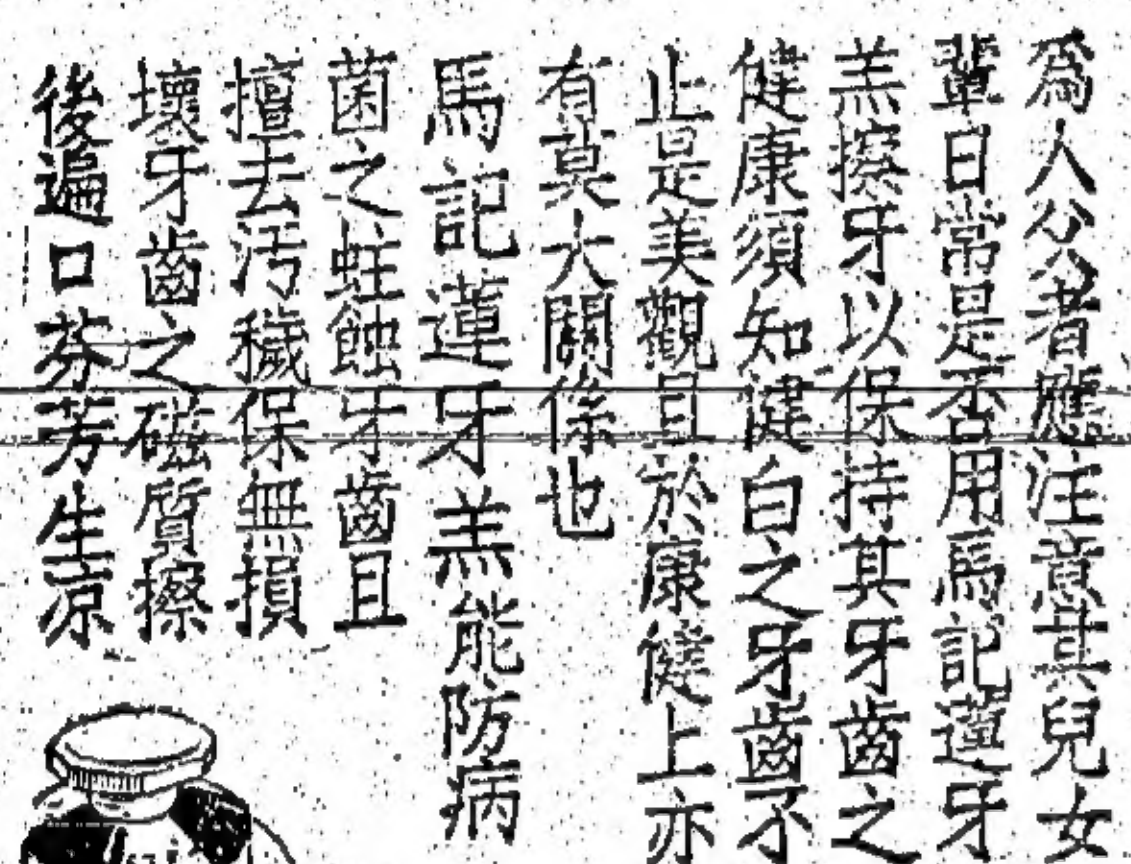 爲人父者應注意其兒女
輩日常是否用馬記蓮牙
羔擦牙以保持其牙齒之
健康須知健白之牙齒不
止是美觀且於康健上亦
有莫大關係也
馬記蓮牙羔能防病
菌之蛀蝕牙齒且
擅去污穢保無損
壞牙齒之磁質擦
後遍口芬芳生凉